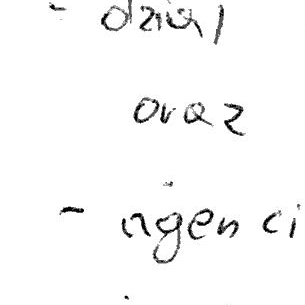 - dział
oraz
- agenci